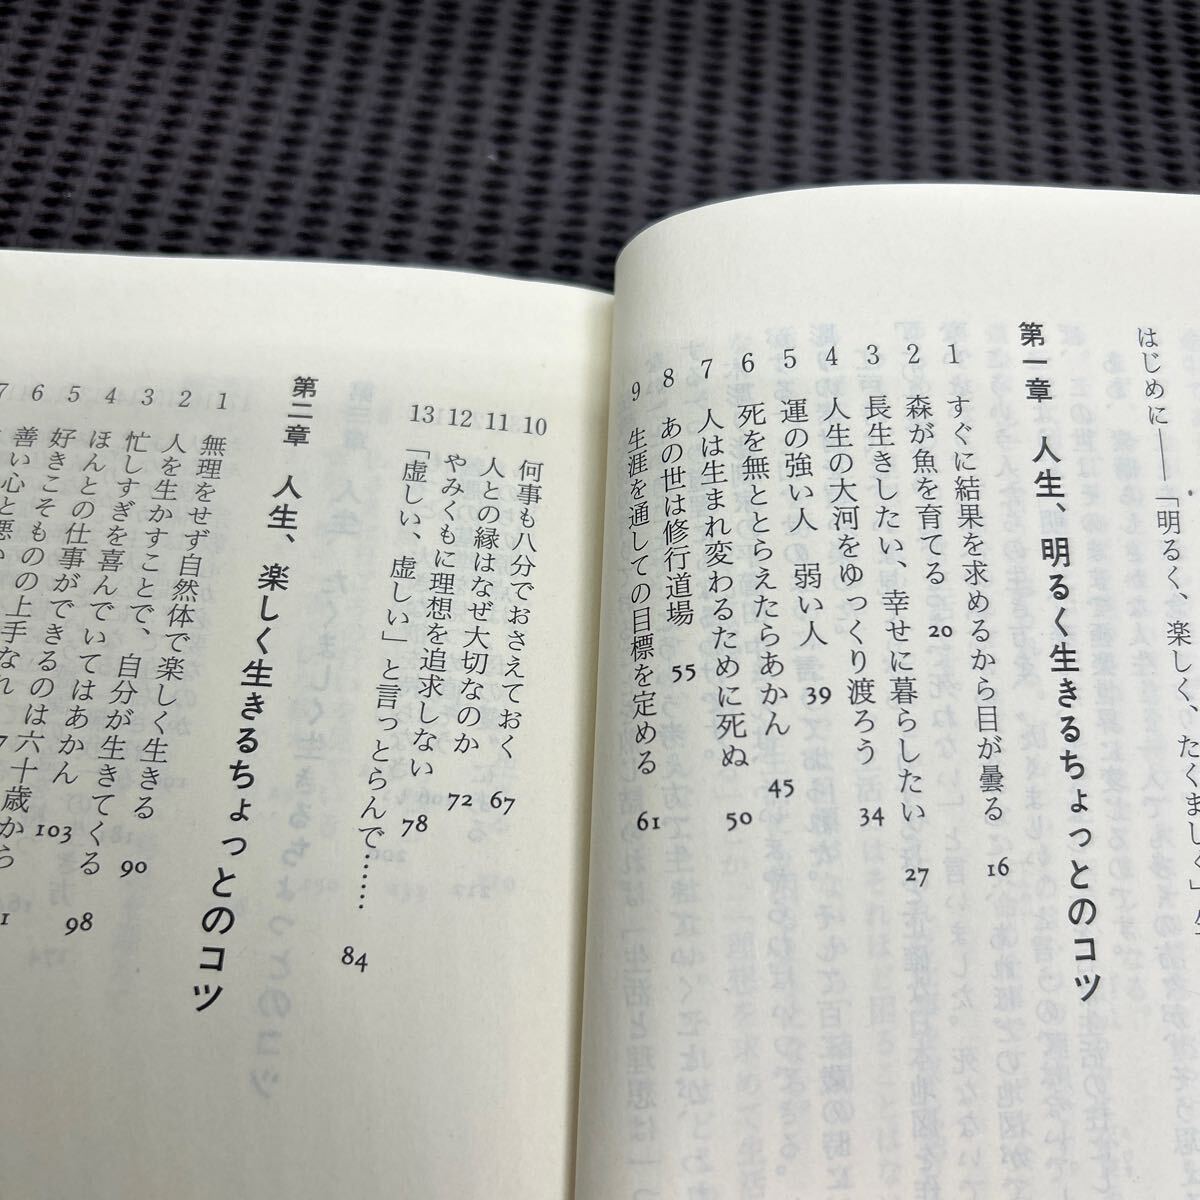 はじめに――「明るく、楽しく、たくましく」
第一章 人生、明るく生きるちょっとのコツ
1 すぐに結果を求めるから目が曇る 16
2 森が魚を育てる 20
3 長生きしたい、幸せに暮らしたい 27
4 人生の大河をゆっくり渡ろう 34
5 運の強い人 弱い人 39
6 死を無ととらえたらあかん 45
7 人は生まれ変わるために死ぬ 50
8 あの世は修行道場 55
9 生涯を通しての目標を定める 61
10 何事も八分でおさえておく 67
11 人との縁はなぜ大切なのか 72
12 やみくもに理想を追求しない 78
13 「虚しい、虚しい」と言っとらんで…… 84
第二章 人生、楽しく生きるちょっとのコツ
1 無理をせず自然体で楽しく生きる 90
2 人を生かすことで、自分が生きてくる 98
3 忙しすぎを喜んでいてはあかん 103
4 ほんとの仕事ができるのは六十歳から
5 好きこそものの上手なれ
6 善い心と悪い
7